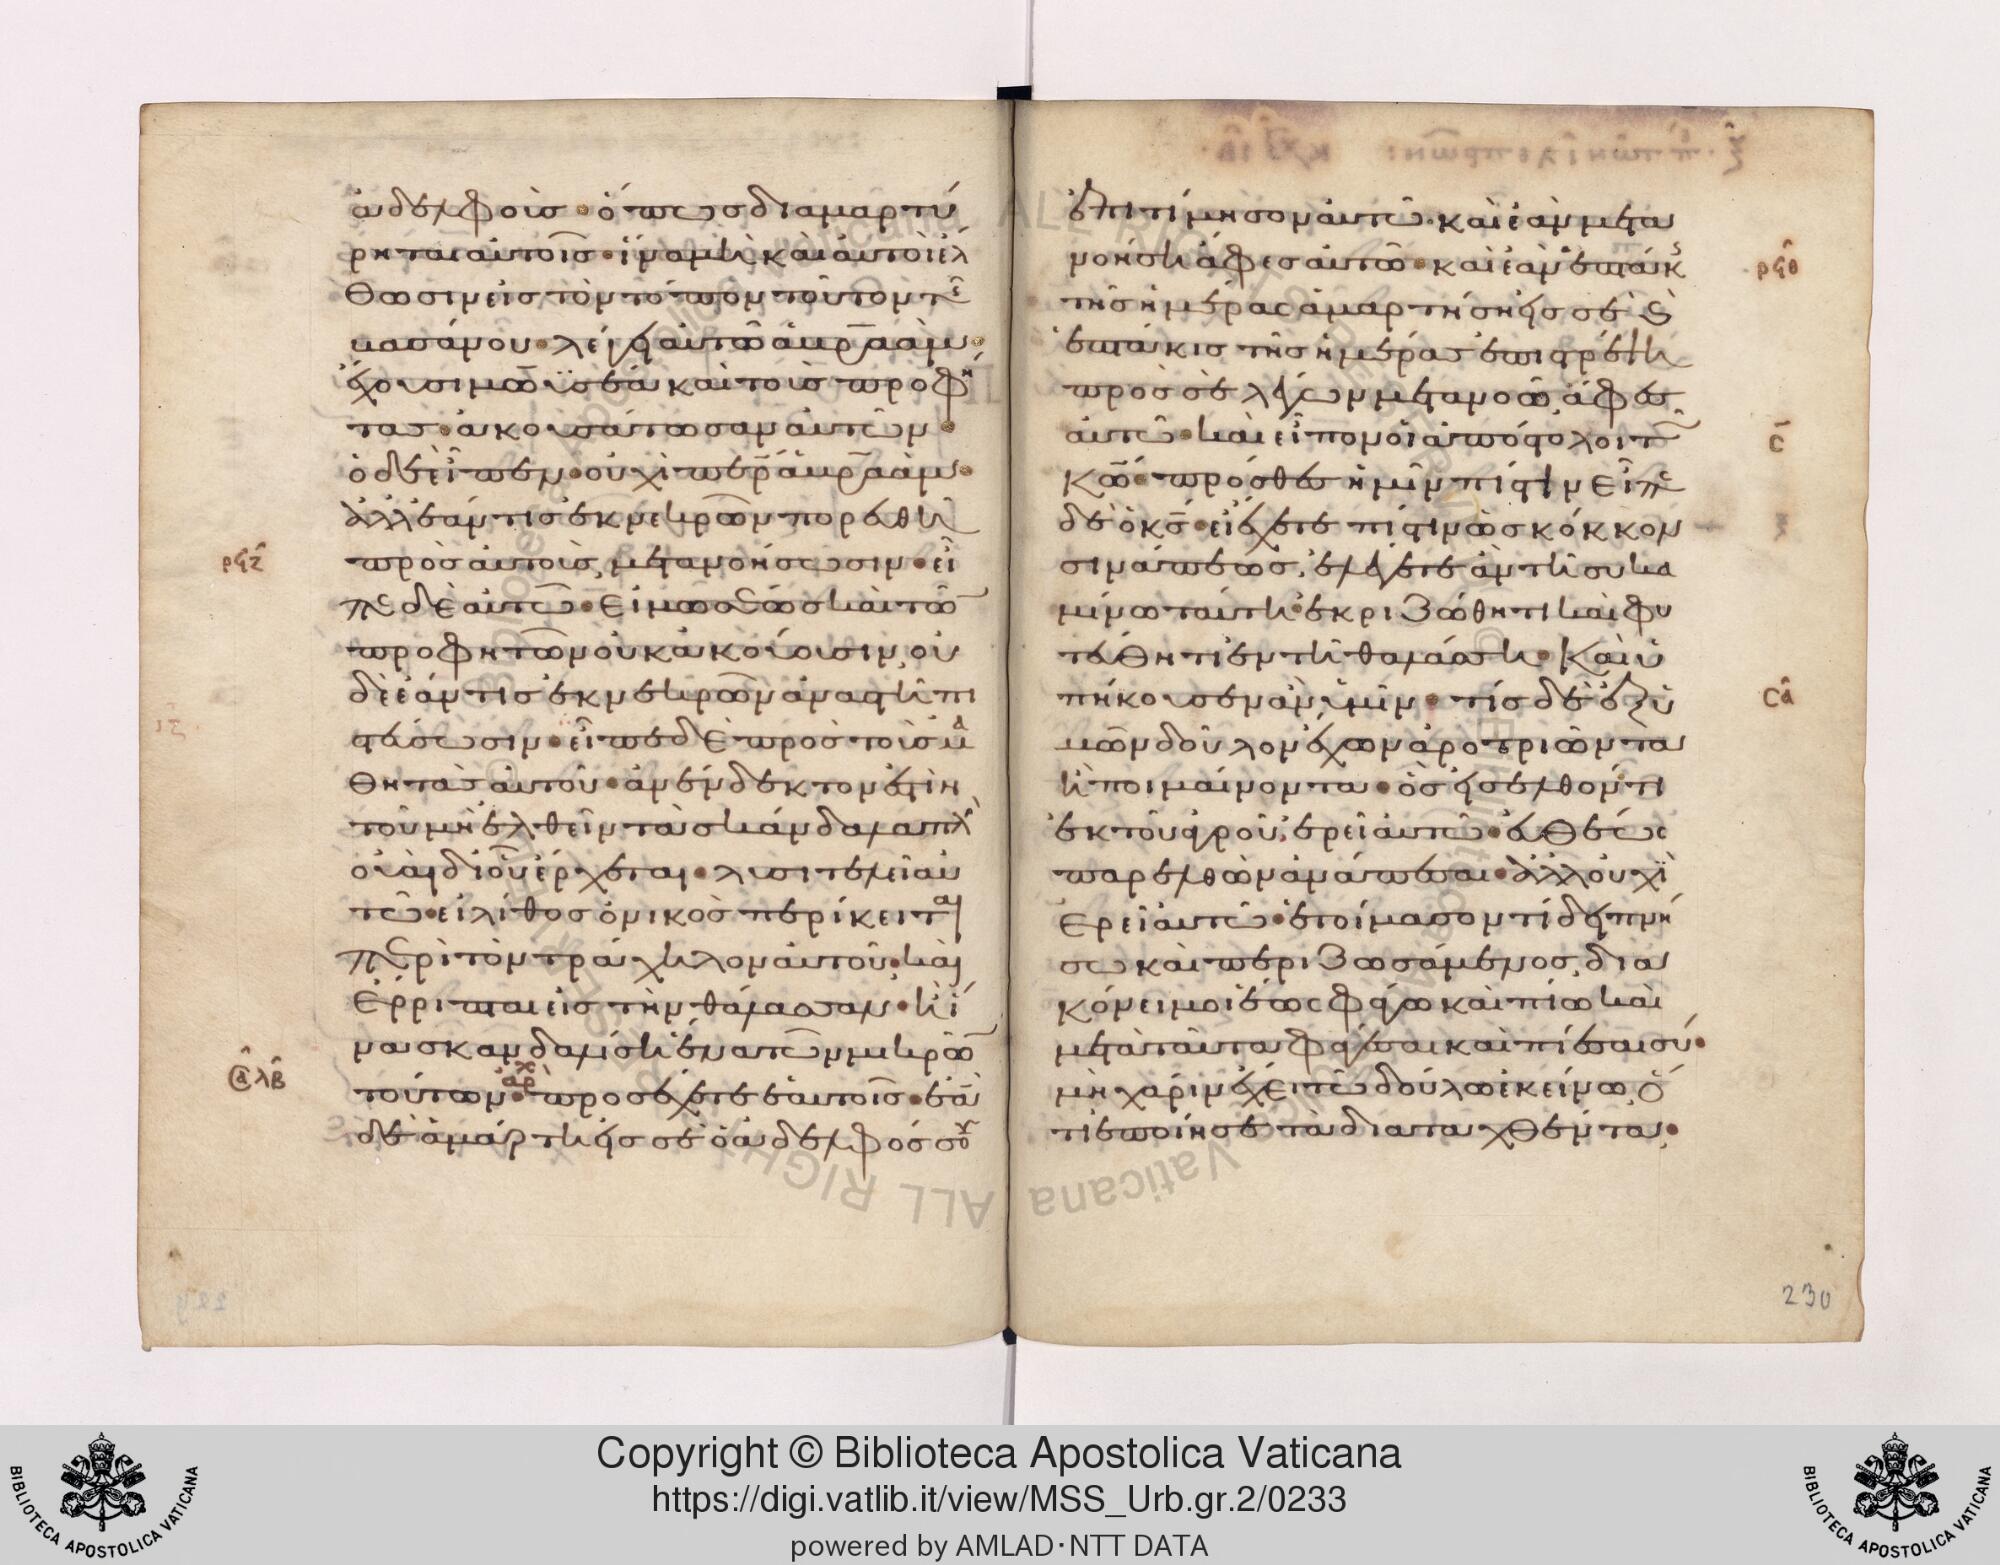 ἀδελφοὺς· ὅπως διαμαρτύ
ρηται αὐτοῖς· ἵνα μὴ καὶ αὐτοὶ ἔλ
θωσιν εἰς τὸν τόπον τοῦτον τῆς
βασάνου· λέγει αὐτῶ ἀβρααμ·
ἔχουσι μωϋσέα καὶ τοὺς προφή
τας· ἀκουσάτωσαν αὐτῶν·
ὁ δὲ εἶπεν· οὐχὶ περ ἀβρααμ·
ἀλλ' ἐάν τις ἐκ νεκρῶν πορευθῆ
πρὸς αὐτοὺς, μετανοήσωσιν· εἶ
πε δὲ αὐτῶ· εἰ μωσέως καὶ τῶν
προφητῶν οὐκ ἀκούουσιν, οὐ
δὲ ἐάν τις ἐκ νεκρῶν ἀναστῆ πι
στεύσωσιν· εἶπε δὲ πρὸς τοὺς μα
θητὰς αὐτοῦ· ἀνένδεκτον ἐστὶν
τοῦ μὴ ἐλθεῖν τὰ σκάνδαλα πλὴν
οὐαὶ δι' οὗ ἔρχεται· λυσιτελεῖ αὐ
τῶ· εἰ λίθος ὀνικὸς περίκειται
περὶ τὸν τράχηλον αὐτοῦ· καὶ
ἔρριπται εἰς τὴν θάλασσαν· ἢ ἵ
να σκανδαλίση ἕνα τῶν μικρῶν
τούτων· προσέχετε ἑαυτοῖς· ἐὰν
δὲ ἁμάρτη εἰς σὲ ὁ ἀδελφός σου
ρϟζ
σλβ
ἀρχ
ἐπιτίμησον αὐτῶ· καὶ ἐὰν μετα
νοήση ἄφες αὐτῶ· καὶ ἐὰν ἑπτάκις
τῆς ἡμέρας ἁμαρτήση εἰς σὲ καὶ
ἑπτάκις τῆς ἡμέρας ἐπιστρέψη
πρὸς σὲ λέγων μετανοῶ, ἀφες
αὐτῶ· καὶ εἶπον οἱ ἀπόστολοι τῶ
κῶ· πρόσθες ἡμῖν πίστιν εἶπε
δὲ ὁ κς· εἰ ἔχετε πίστιν ὡς κόκκον
σινάπεως, ἐλέγετε ἂν τῆ συκα
μίνω ταύτη· ἐκριζώθητι καὶ φυ
τεύθητι ἐν τῆ θαλάσση· Καὶ ὑ
πήκουσεν ἂν ὑμῖν· τίς δὲ ἐξ ὑ
μῶν δοῦλον ἔχων ἀροτριῶντα
ἢ ποιμαίνοντα· ὃς εἰσελθόντι
ἐκ τοῦ ἀγροῦ, ἐρεῖ αὐτῶ· εὐθέως
παρελθὼν ἀνάπεσαι· ἀλλ' οὐχὶ
ἐρεῖ αὐτῶ· ἑτοίμασον τί δειπνή
σω καὶ περιζωσάμενος, δια
κόνει μοι ἕως φάγω καὶ πίω καὶ
μετὰ ταῦτα φάγεσαι καὶ πίεσαι σύ·
μὴ χάριν ἔχει τῶ δούλω ἐκείνω, ὅ
τι ἐποίησε τὰ διαταχθέντα·
ρϟθ
σ
σα
230
Copyright © Biblioteca Apostolica Vaticana
https://digi.vatlib.it/view/MSS_Urb.gr.2/0233
powered by AMLAD·NTT DATA
BIBLIOTECA APOSTOLICA VATICANA
BIBLIOTECA APOSTOLICA VATICANA